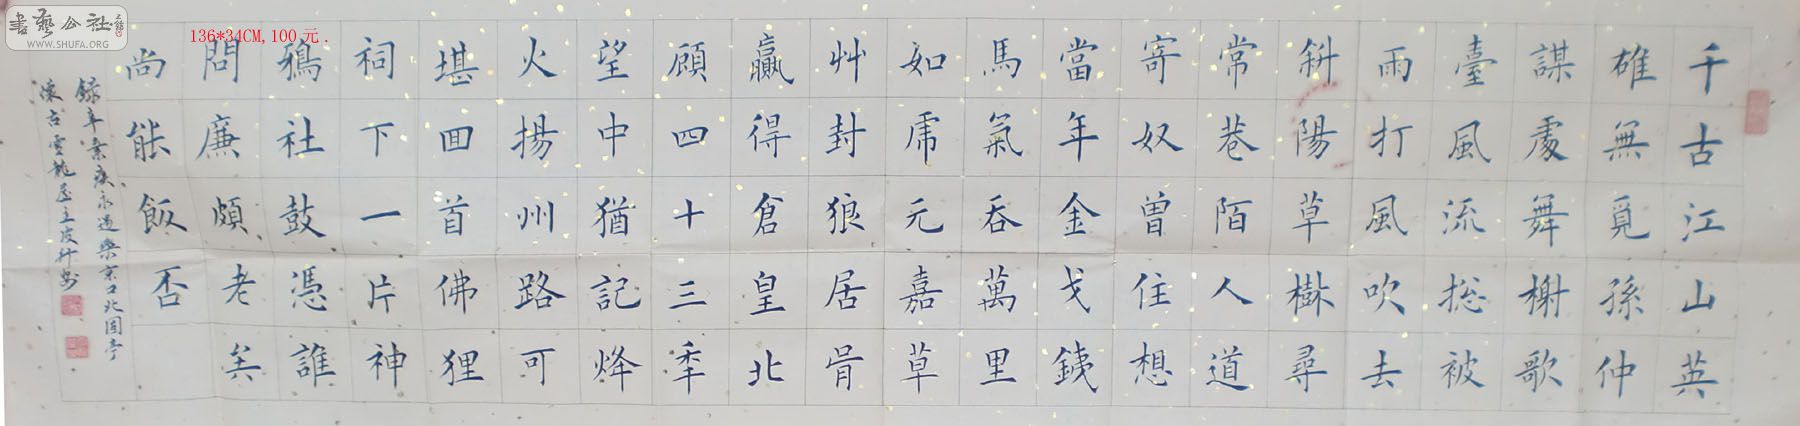 書藝公社
WWW.SHUFA.ORG
136*34CM,100元.
千古江山英
雄無覓孫仲
謀處舞榭歌
臺風流揔被
雨打風吹去
斜陽草樹尋
常巷陌人道
寄奴曾住想
當年金戈銕
馬氣吞萬里
如虎元嘉草
艸封狼居胥
贏得倉皇北
顧四十三秊
望中猶記烽
火揚州路可
堪回首佛狸
祠下一片神
鴉社鼓憑誰
問廉頗老矣
尚能飯否
錄辛棄疾永遇樂京口北固亭
懷古雲龍